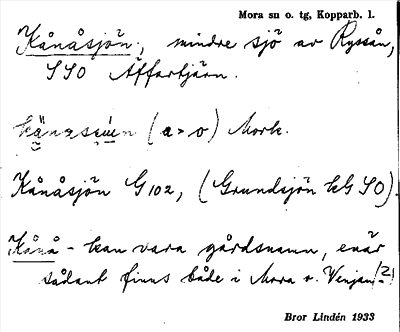 Mora sn o. tg, Kopparb. l.
Kånåsjön, mindre sjö av Ryssån,
SSO Äffartjärn.
(a > o) Mork.
Kånåsjön G 102, (Grundsjön kG SO).
Kånå - kan vara gårdsnamn, enär
sådant finns både i Mora o. Venjan (?)
Bror Lindén 1933